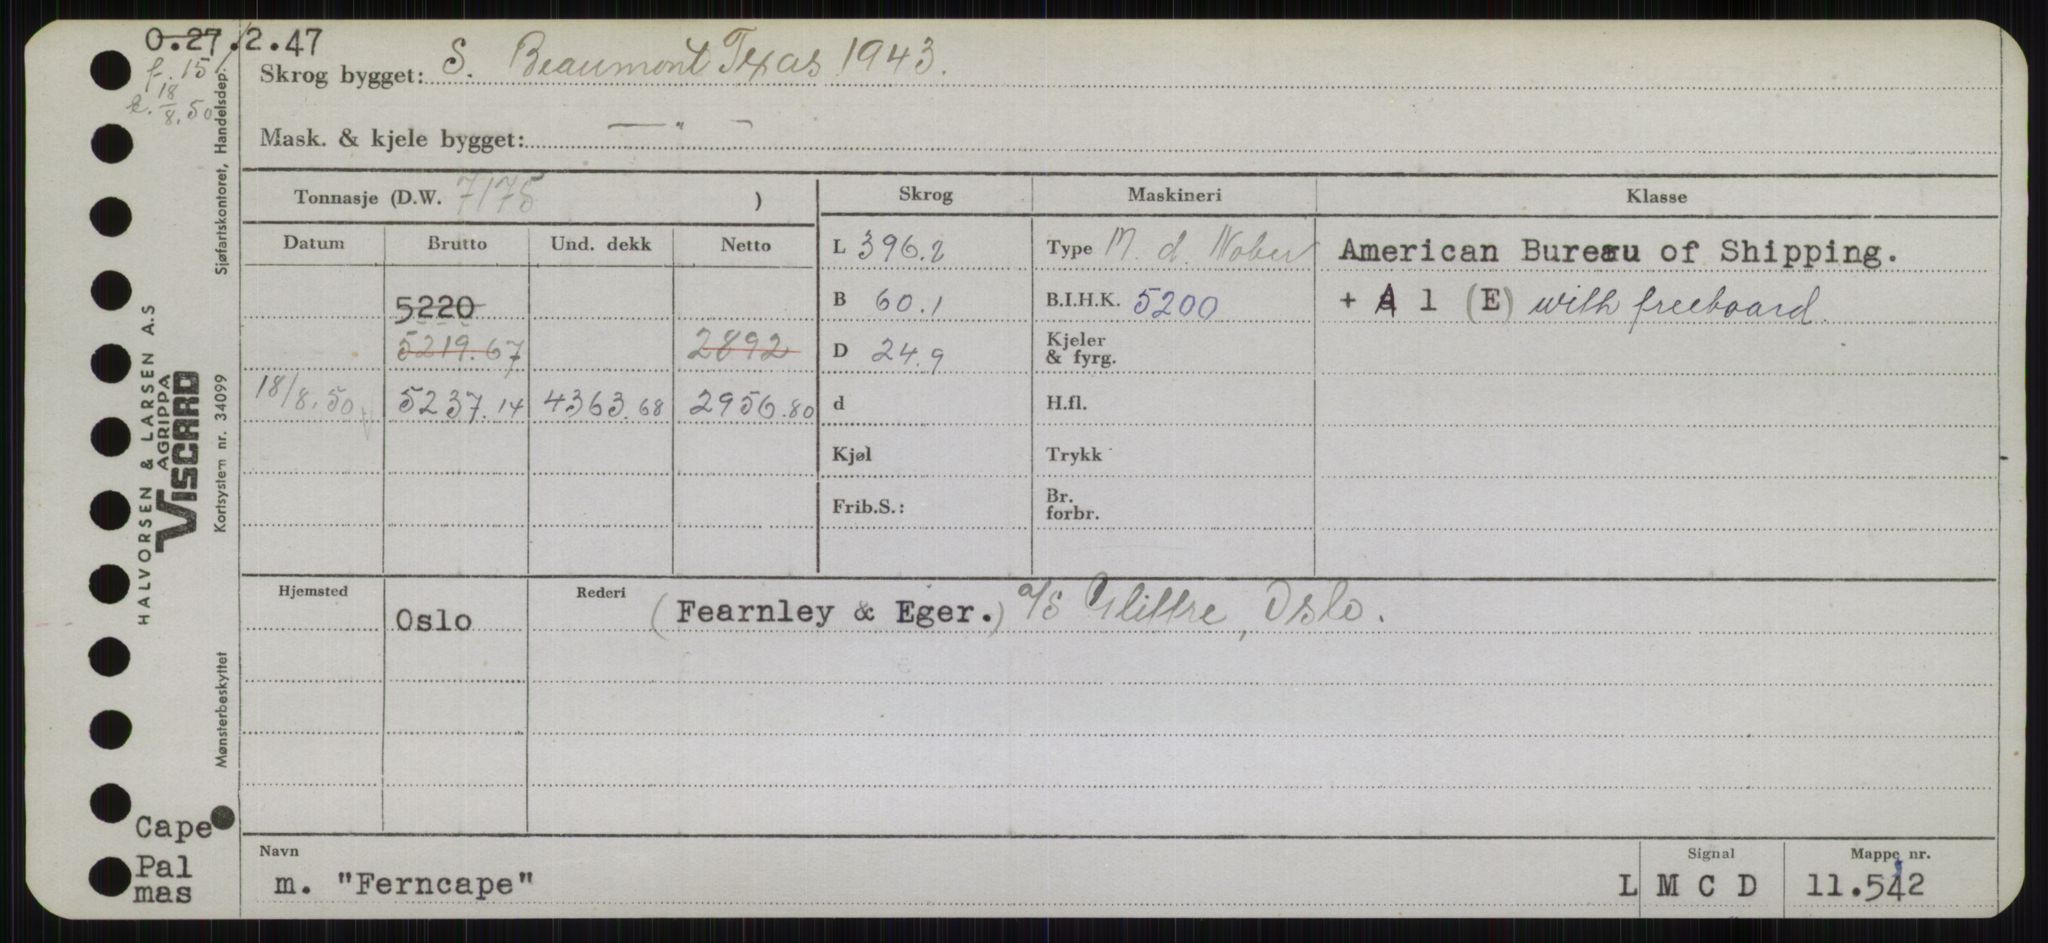 O.27.2.47
f. 15
18
8.50
Skrog bygget: S. Beaumont Texas 1943.
Mask. & kjele bygget: — " —
Tonnasje (D.W. 7175 )
Skrog Maskineri Klasse
Datum Brutto Und. dekk Netto
L 396.2 Type M. d. American Bureau of Shipping.
5220 B 60.1 B.I.H.K. 5200 + A 1 (E) with freeboard.
5219.67 2892 D 24.9 Kjeler & fyrg.
18/8.50 5237.14 4363.68 2956.80 d H.fl.
Kjøl Trykk
Frib.S.: Br. forbr.
Hjemsted Oslo Rederi (Fearnley & Eger.) a/s Glittre, Oslo.
Navn m. "Ferncape"
Signal L M C D
Mappe nr. 11.542
Cape
Pal
mas
HALVORSEN & LARSEN A.S
AGRIPPA
VISCARD
Sjøfartskontoret, Handelsdep.
Kortsystem nr. 34099
Mønsterbeskyttet